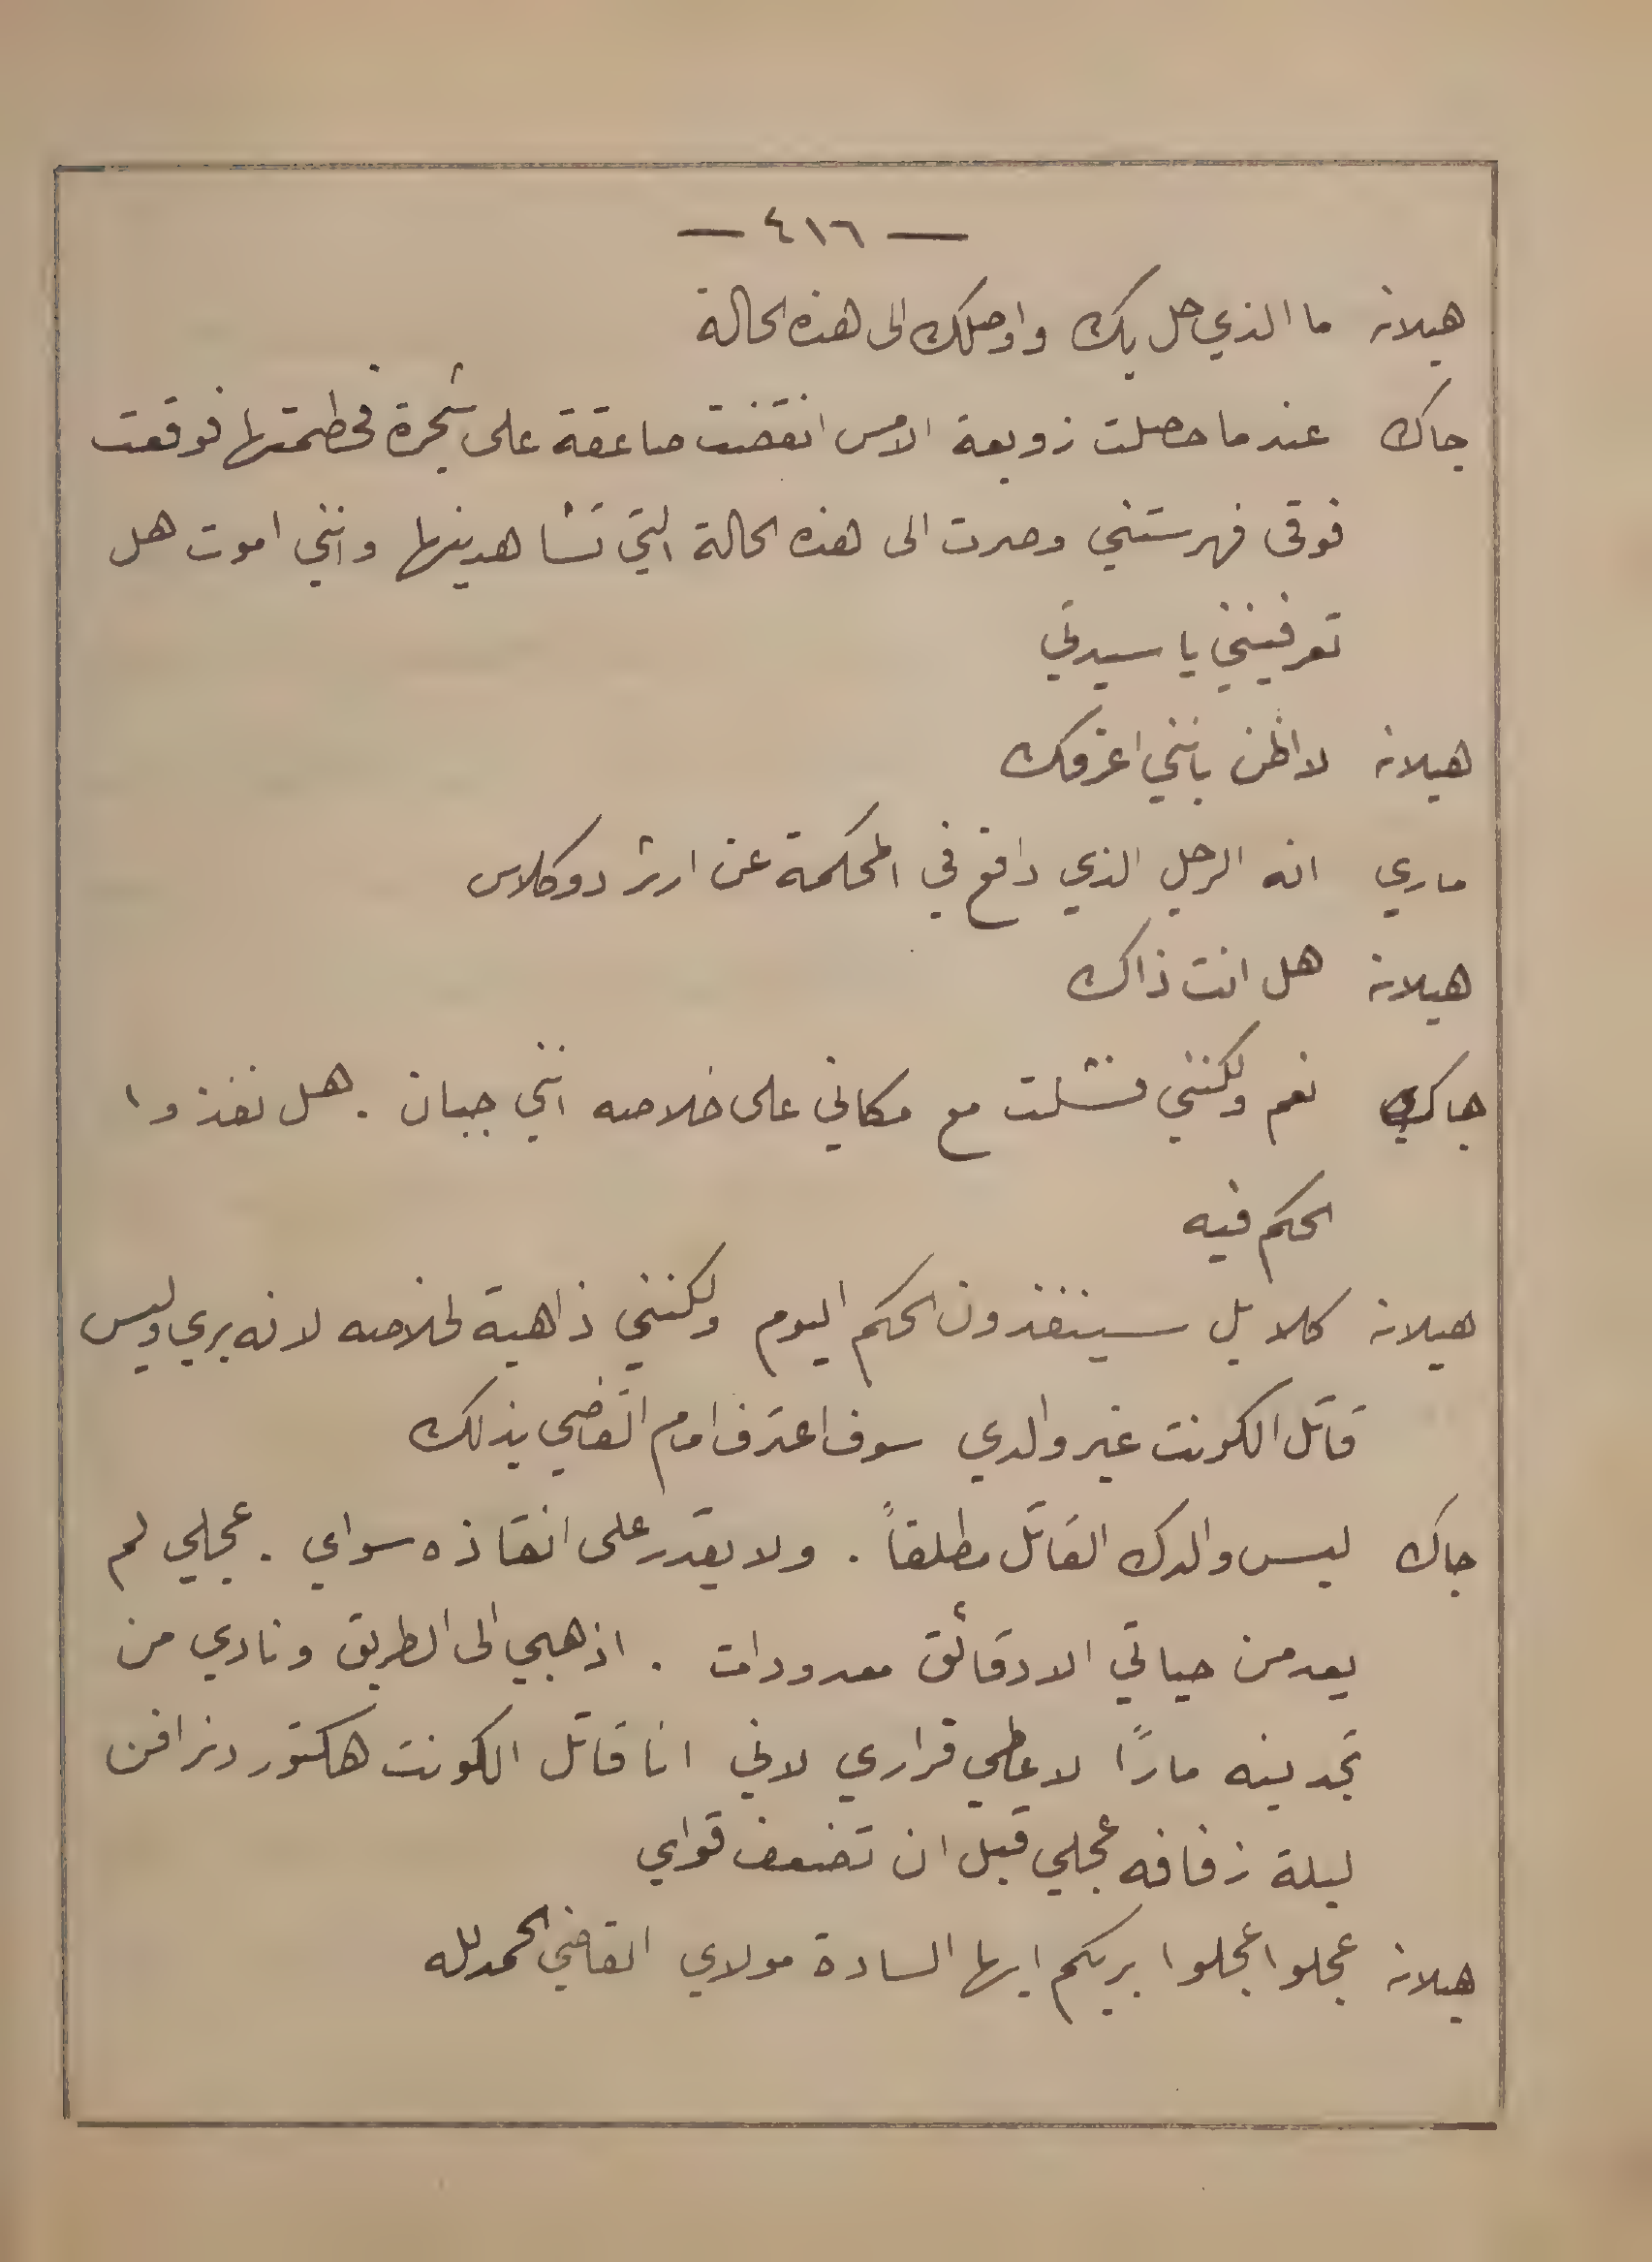 — ٤١٦ —
هيلانه ما الذي حل بك واوصلك الى هذه الحالة
جاك عندما حصلت زوبعة الامس انقضت صاعقة على شجرة فحطمتها فوقعت
فوقي فهرستني وصرت الى هذه الحالة التي تشاهدينها وانني اموت هل
تعرفينني يا سيدتي
هيلانه لا اظن بانني اعرفك
ماري انه الرجل الذي دافع في المحكمة عن ارثر دوكلاس
هيلانه هل انت ذاك
جاك نعم ولكنني فشلت مع مكاني على خلاصه انني جبان . هل نفذوا
الحكم فيه
هيلانه كلا بل سينفذون الحكم اليوم ولكنني ذاهبة لخلاصه لانه بري وليس
قاتل الكونت غير والدي سوف اعترف امام القاضي بذلك
جاك ليس والدك القاتل مطلقاً . ولا يقدر على انقاذه سواي . عجلي لم
يعد من حياتي الا دقائق معدودات . اذهبي الى الطريق ونادي من
تجدينه ماراً لاعطي قراري لاني انا قاتل الكونت هكتور دنرافن
ليلة زفافه عجلي قبل ان تضعف قواي
هيلانه عجلوا عجلوا بربكم ايها السادة مولاي القاضي الحمدلله